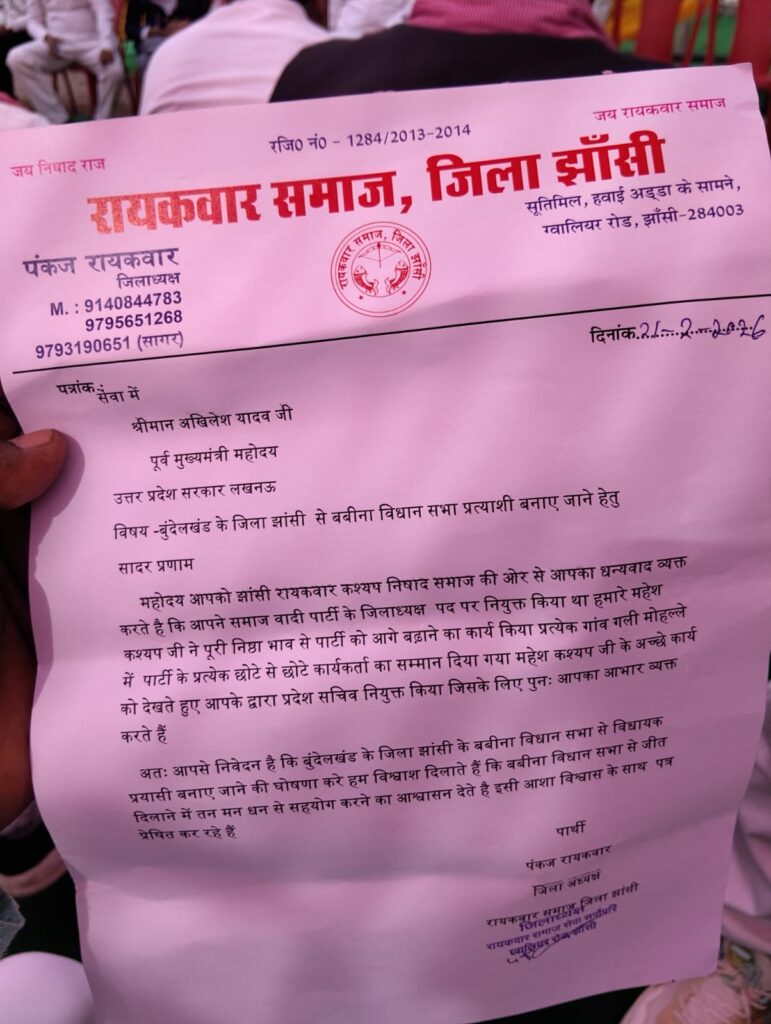 जय निषाद राज
रजि0 नं0 - 1284/2013-2014
जय रायकवार समाज
रायकवार समाज, जिला झाँसी
सूतिमिल, हवाई अड्डा के सामने,
ग्वालियर रोड, झाँसी-284003
पंकज रायकवार
जिलाध्यक्ष
M. : 9140844783
9795651268
9793190651 (सागर)
रायकवार समाज, जिला झाँसी
दिनांक.21-2-2026
पत्रांक
सेवा में
श्रीमान अखिलेश यादव जी
पूर्व मुख्यमंत्री महोदय
उत्तर प्रदेश सरकार लखनऊ
विषय -बुंदेलखंड के जिला झांसी से बबीना विधान सभा प्रत्याशी बनाए जाने हेतु
सादर प्रणाम
महोदय आपको झांसी रायकवार कश्यप निषाद समाज की ओर से आपका धन्यवाद व्यक्त
करते है कि आपने समाज वादी पार्टी के जिलाध्यक्ष पद पर नियुक्त किया था हमारे महेश
कश्यप जी ने पूरी निष्ठा भाव से पार्टी को आगे बढ़ाने का कार्य किया प्रत्येक गांव गली मोहल्ले
में पार्टी के प्रत्येक छोटे से छोटे कार्यकर्ता का सम्मान दिया गया महेश कश्यप जी के अच्छे कार्य
को देखते हुए आपके द्वारा प्रदेश सचिव नियुक्त किया जिसके लिए पुनः आपका आभार व्यक्त
करते हैं
अतः आपसे निवेदन है कि बुंदेलखंड के जिला झांसी के बबीना विधान सभा से विधायक
प्रयासी बनाए जाने की घोषणा करे हम विश्वाश दिलाते हैं कि बबीना विधान सभा से जीत
दिलाने में तन मन धन से सहयोग करने का आश्वासन देते है इसी आशा विश्वास के साथ पत्र
प्रेषित कर रहे हैं
पार्थी
पंकज रायकवार
जिला अध्यक्ष
रायकवार समाज जिला झांसी
जिलाध्यक्ष
रायकवार समाज सेवा
ग्वालियर रोड, झाँसी